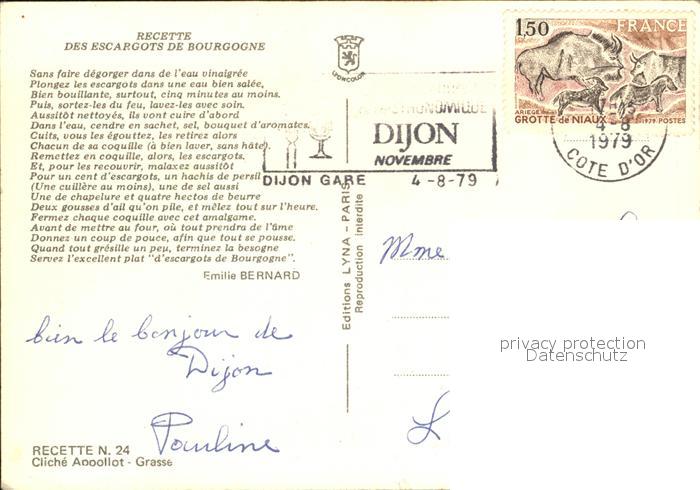 RECETTE
DES ESCARGOTS DE BOURGOGNE
Sans faire dégorger dans de l'eau vinaigrée
Plongez les escargots dans une eau bien salée,
Bien bouillante, surtout, cinq minutes au moins.
Puis, sortez-les du feu, lavez-les avec soin.
Aussitôt nettoyés, ils vont cuire d'abord
Dans l'eau, cendre en sachet, sel, bouquet d'aromates.
Cuits, vous les égouttez, les retirez alors
Chacun de sa coquille (à bien laver, sans hâte).
Remettez en coquille, alors, les escargots.
Et, pour les recouvrir, malaxez aussitôt
Pour un cent d'escargots, un hachis de persil
(Une cuillère au moins), une de sel aussi
Une de chapelure et quatre hectos de beurre
Deux gousses d'ail qu'on pile, et mêlez tout sur l'heure.
Fermez chaque coquille avec cet amalgame.
Avant de mettre au four, où tout prendra de l'âme
Donnez un coup de pouce, afin que tout se pousse.
Quand tout grésille un peu, terminez la besogne
Servez l'excellent plat "d'escargots de Bourgogne".
Emilie BERNARD
bien le bonjour de
Dijon
Pauline
RECETTE N. 24
Cliché Apollot - Grasse
LYONCOLOR
Editions LYNA - PARIS
Reproduction interdite
GASTRONOMIQUE
DIJON
NOVEMBRE
DIJON GARE 4-8-79
1,50 FRANCE
ARIEGE
GROTTE de NIAUX 1979 POSTES
4-8
1979
COTE D'OR
Mme
L
privacy protection
Datenschutz